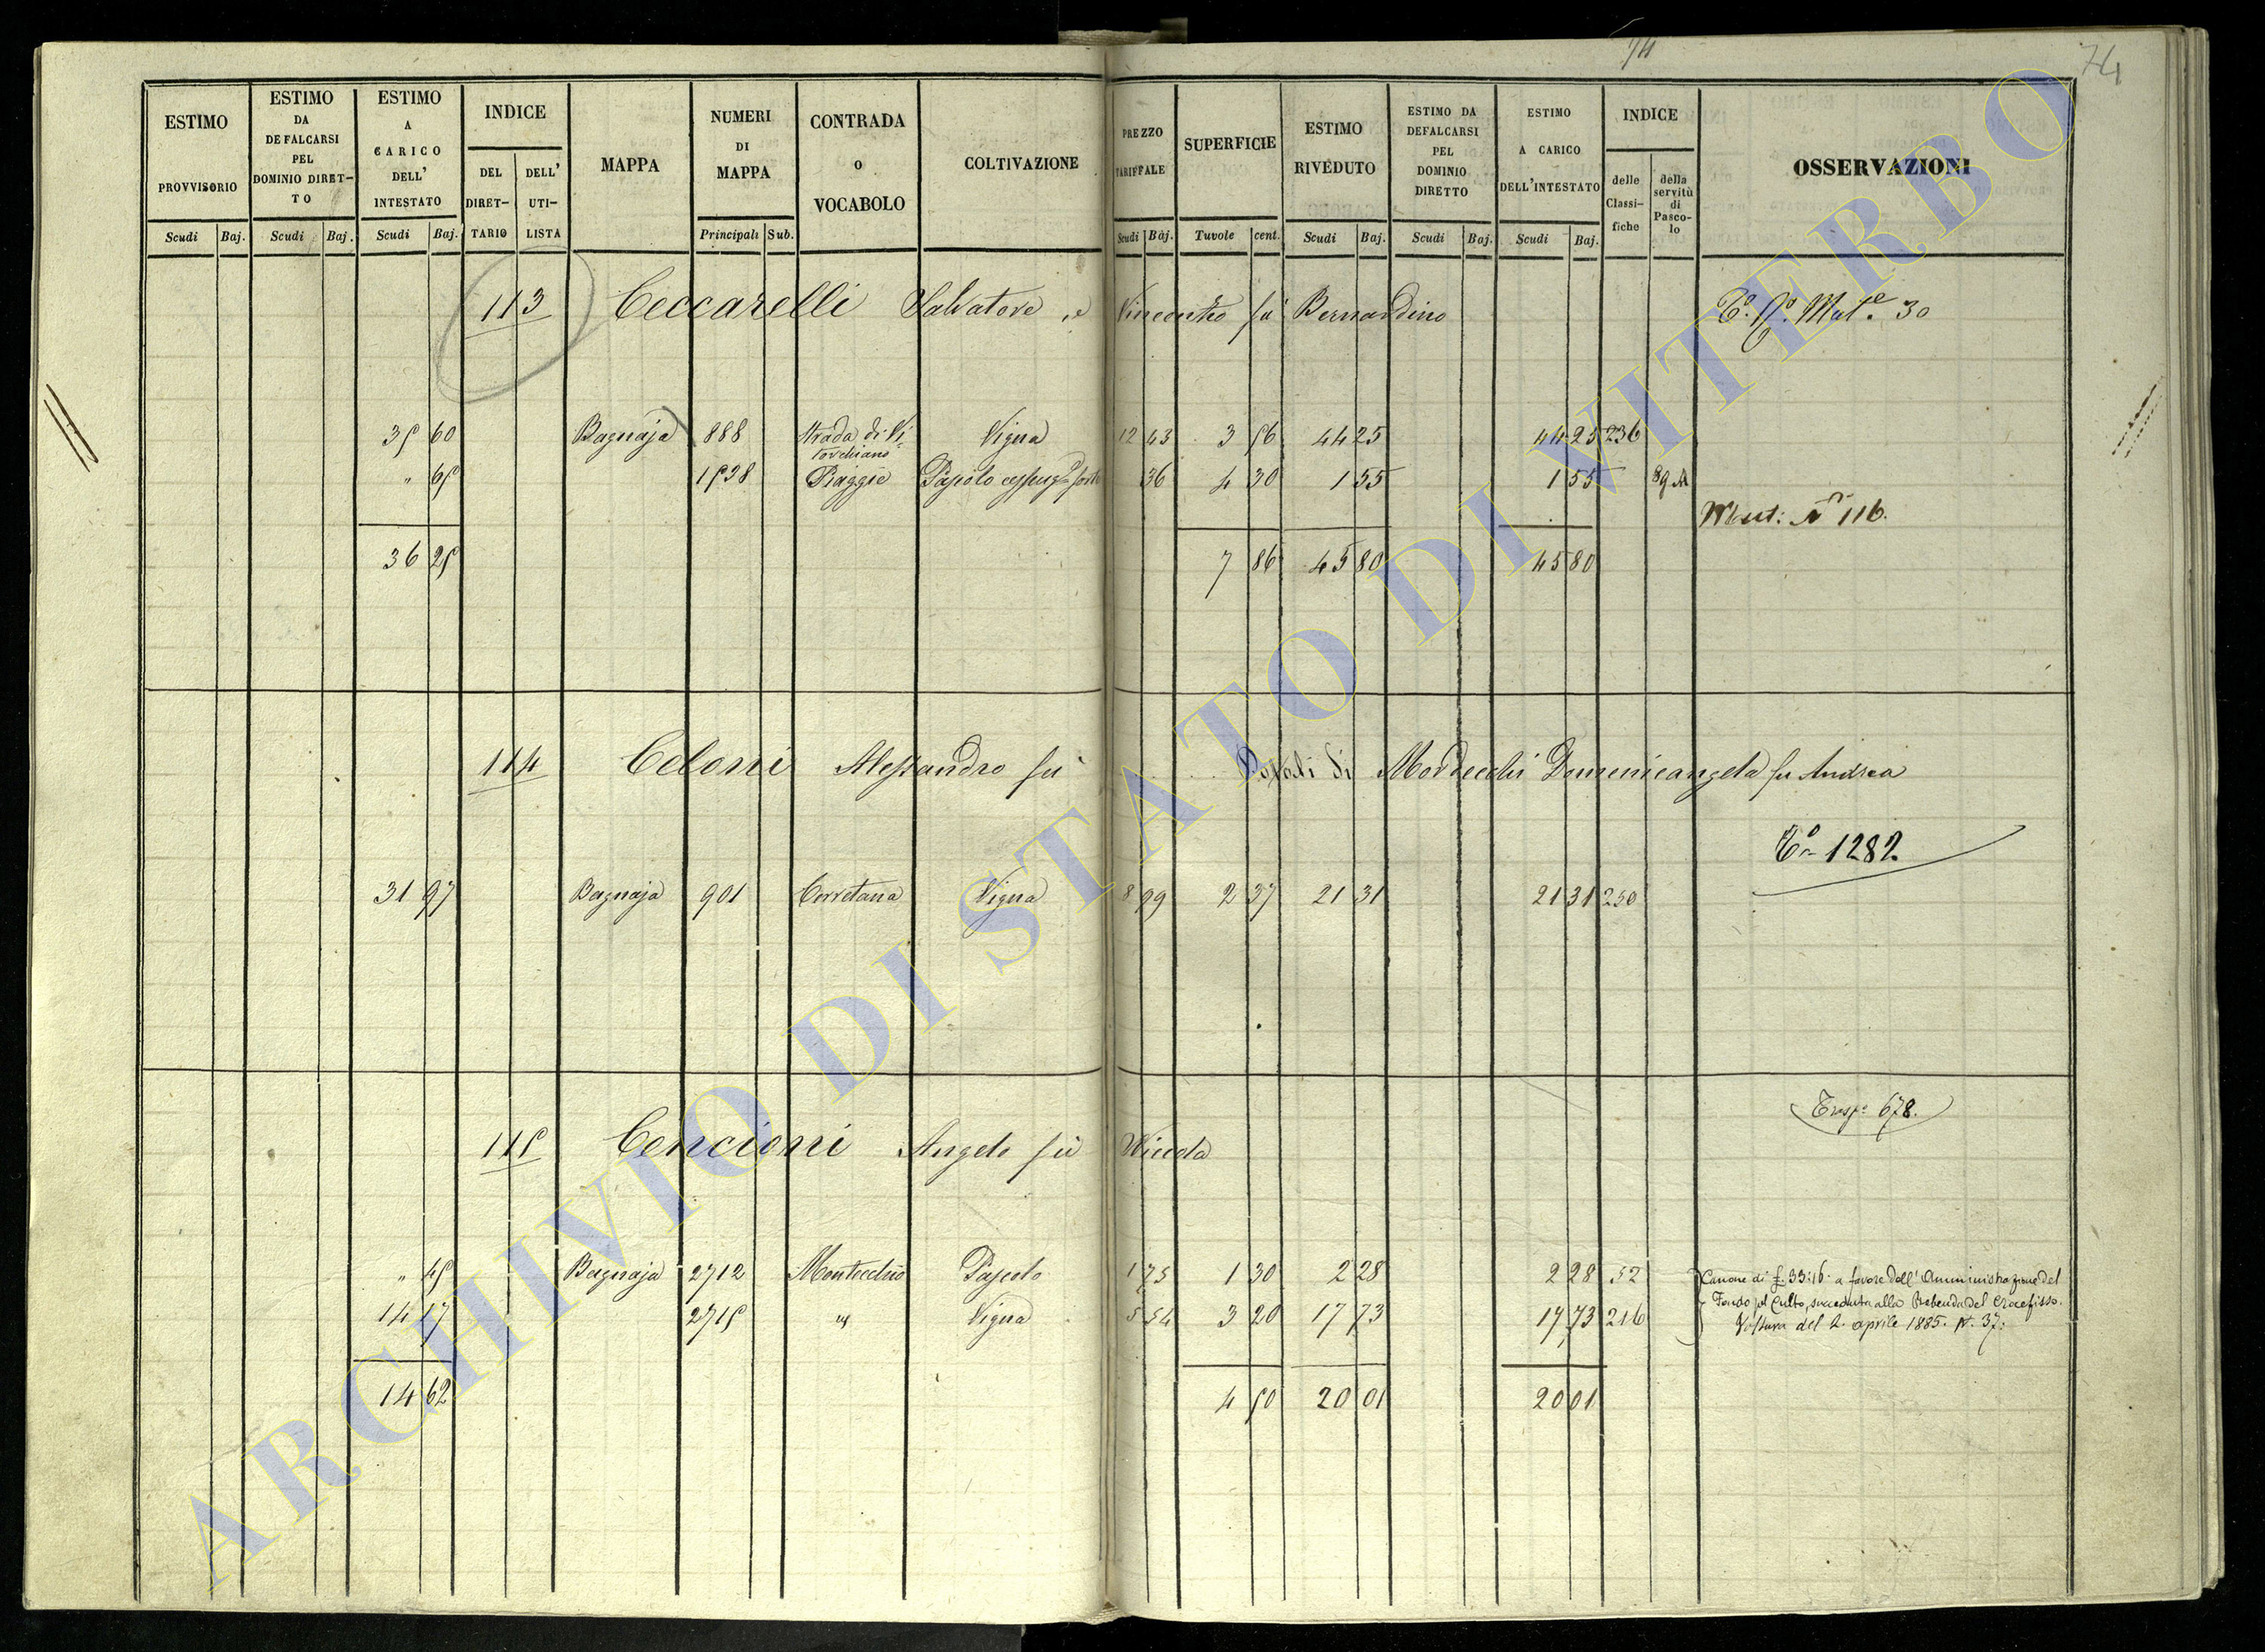 74
74
ESTIMO PROVVISORIO Scudi Baj.
ESTIMO DA DEFALCARSI PEL DOMINIO DIRET-TO Scudi Baj.
ESTIMO A CARICO DELL' INTESTATO Scudi Baj.
INDICE DEL DIRET-TARIO DELL' UTI-LISTA
MAPPA
NUMERI DI MAPPA Principali Sub.
CONTRADA o VOCABOLO
COLTIVAZIONE
PREZZO TARIFFALE Scudi Baj.
SUPERFICIE Tavole cent.
ESTIMO RIVEDUTO Scudi Baj.
ESTIMO DA DEFALCARSI PEL DOMINIO DIRETTO Scudi Baj.
ESTIMO A CARICO DELL'INTESTATO Scudi Baj.
INDICE delle Classi-fiche della servitù di Pasco-lo
OSSERVAZIONI
113 Ceccarelli Salvatore, e Vincenzo fù Bernardino 30
35 60 Bagnaja 888 Strada di Vi-torchiano Vigna 12 43 3 56 44 25 44 25 236
" 65 1538 Piaggie Pascolo 36 4 30 1 55 1 55 89
N° 116.
36 25 7 86 45 80 45 80
114 Celoni Alessandro fu Dotali di Mordecchi Domenicangela fu Andrea
T° 1282
31 97 Bagnaja 901 Corretana Vigna 8 99 2 37 21 31 21 31 250
Trasp: 678.
115 Cencioni Angelo fù Nicola
" 45 Bagnaja 2712 Montecchio Pascolo 1 75 1 30 2 28 2 28 52
14 17 2715 " Vigna 5 54 3 20 17 73 17 73 216
Canone di £. 33:16 a favore dell'Amministrazione del
Fondo pel Culto, succeduta alla Prebenda del Crocefisso.
Voltura del 2. aprile 1885. N. 37:
14 62 4 50 20 01 20 01
ARCHIVIO DI STATO DI VITERBO